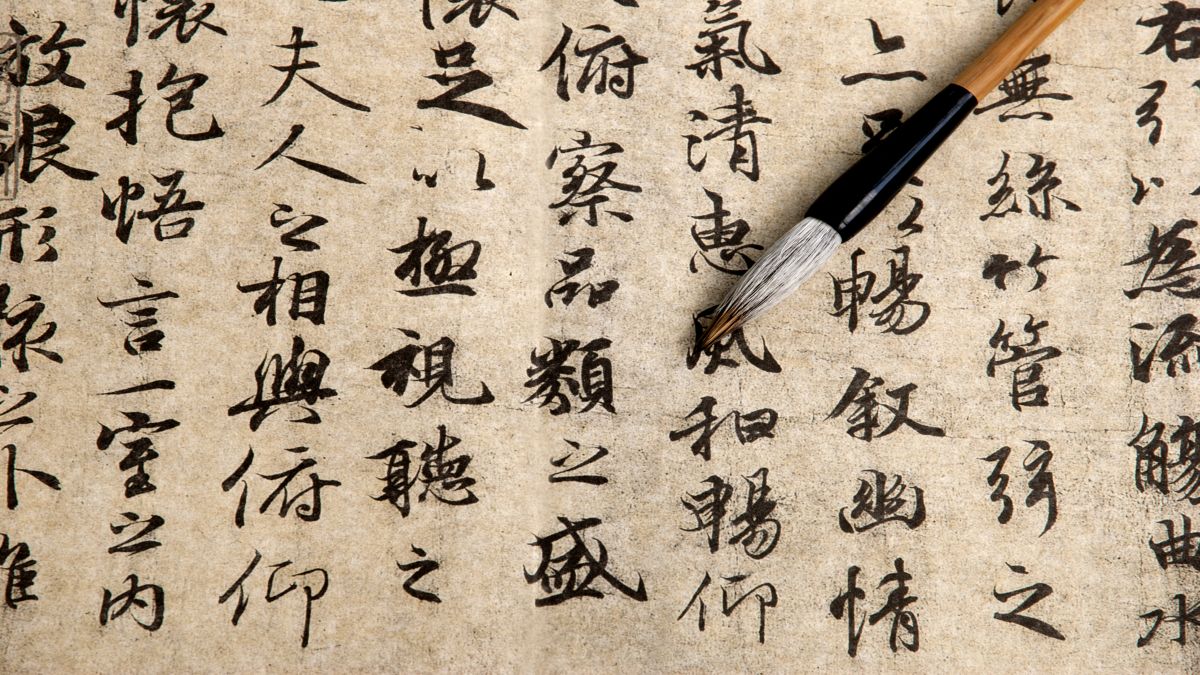 右引以為流觴曲水
無絲竹管弦之
亦足暢叙幽情
氣清惠風和暢仰
俯察品類之盛
懷足以極視聽之
夫人之相與俯仰
懷抱悟言一室之内
放浪形骸之外雖